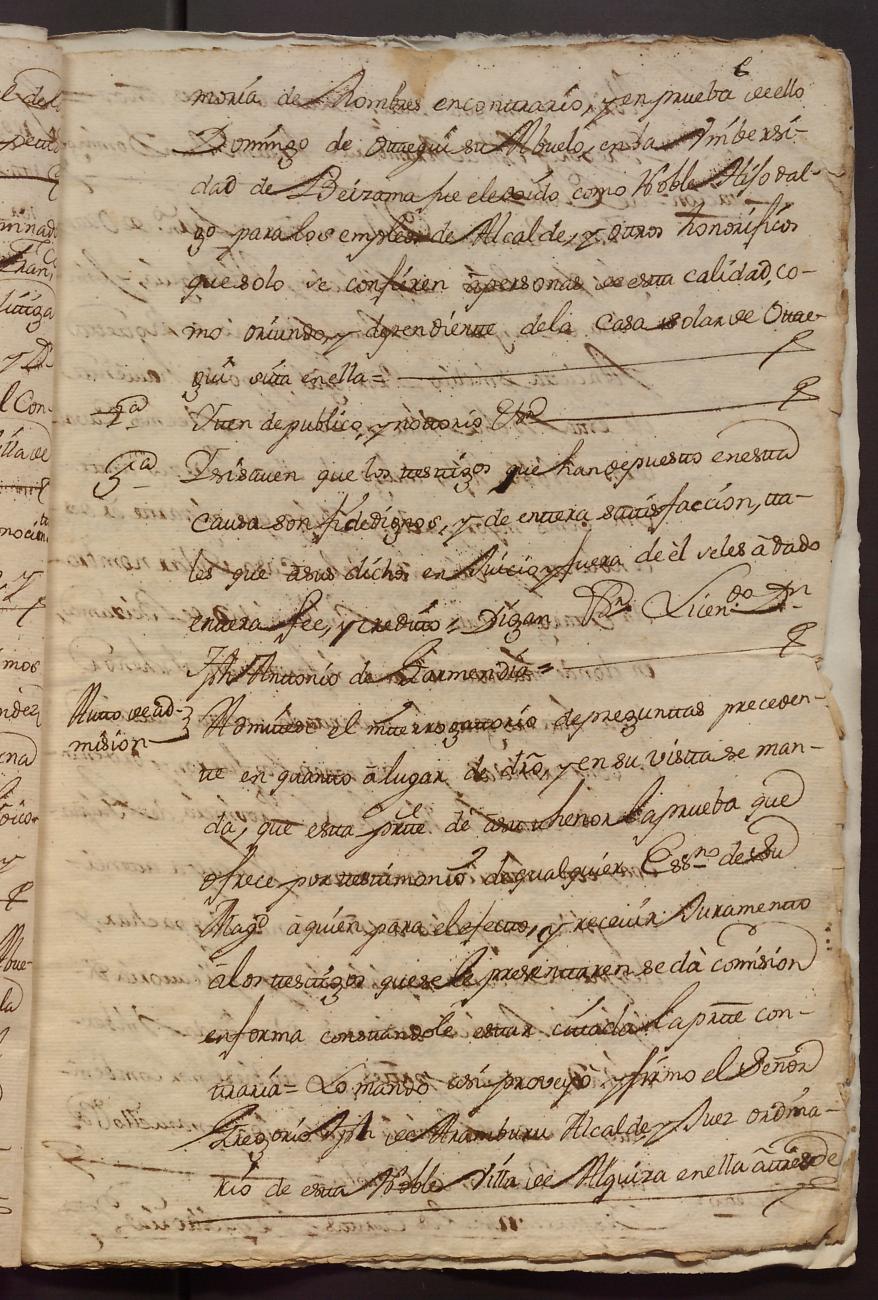 6
moria de hombres encontrario, y en prueba de ello
Domingo de Ottegui su Abuelo, en la Vnibersi-
dad de Beizama fue elexido como Noble Hijo dal-
go para los empleos de Alcalde, y otros honorificos
que solo se confieren a personas de esta calidad, co-
mo oriundo, y dependiente de la Casa solar de Otte-
gui sita en ella=
2ª Yten de publico, y notorio Etta
3ª Y si saven que los testigos que han depuesto en esta
causa son fidedignos, y de entera satisfaccion, ta-
les que a sus dichos en Juicio y fuera de èl se les a dado
entera fee, y credito, Digan Licen.do Dn
Jph Antonio de Garmendia=
Auto de ad-
mision
Admitese el interrogattorio de preguntas preceden-
te en quanto à lugar de dro, y en su vista se man-
da, que esta prte dè a su thenor la prueba que
ofrece por testimonio de qualquier Essno de Su
Magd à quien para el efecto, y receivir Juramento
à los testigos que se le presentaren se dà comision
en forma constandole estar citada la prte con-
traria= Lo mandò asi proveyò, y firmo el Señor
Gregorio Jph de Aramburu Alcalde y Juez ordina-
rio de esta Noble Villa de Alquiza en ella à tres de